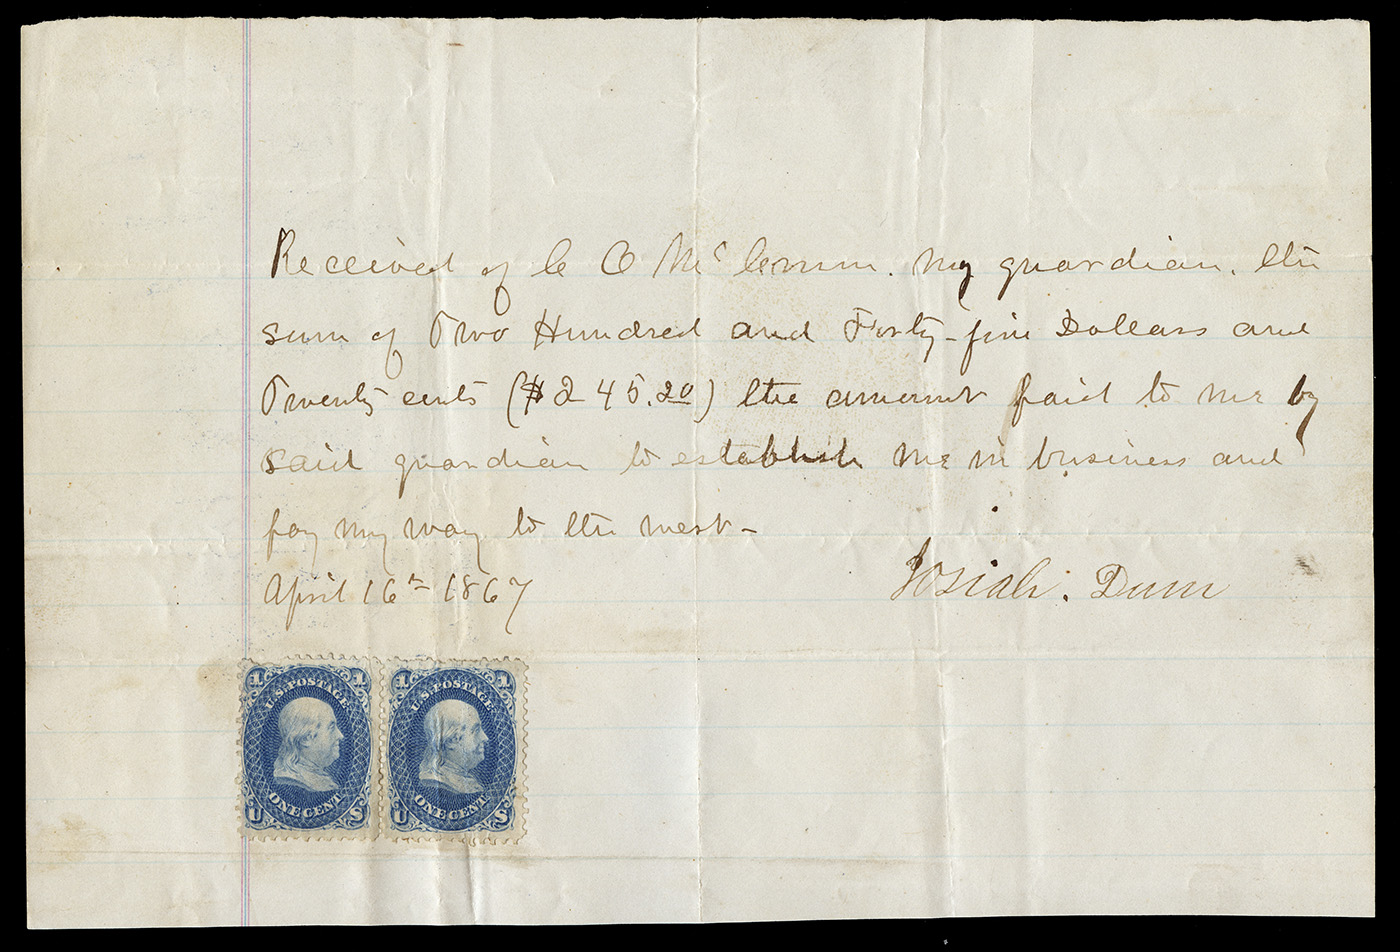 Received of C O Mc my guardian. the
sum of Two Hundred and Forty-five Dollars and
Twenty cents ($245.20) the amount paid to me by
said guardian to establish me in business and
pay my way to the west-
April 16th 1867
Josiah. Dunn
1 1
U.S. POSTAGE
ONE CENT
U S
1 1
U.S. POSTAGE
ONE CENT
U S